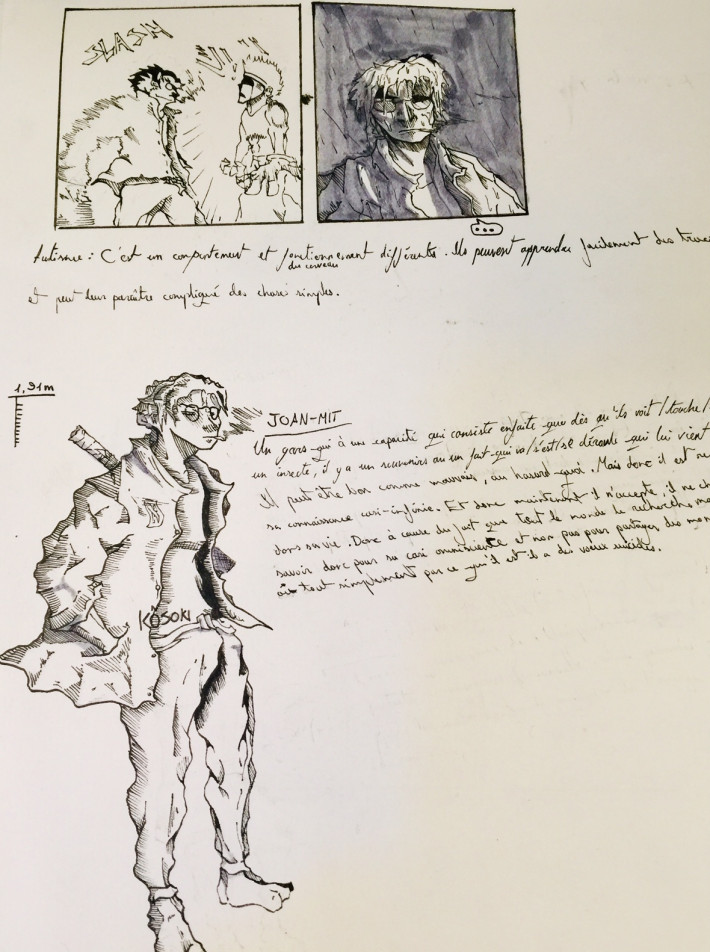 SLASH
...
Autisme : C'est un comportement et fonctionnement différentes. Ils peuvent apprendre facilement des trucs
du cerveau
et peut leur paraître compliqué des chose simples.
1,91m
JOAN-MIT
Un gars qui à une capacité qui consiste enfaite que dès qu'ils voit/touche/
un insecte, il y a un souvenirs ou un fait qui va/s'est/se déroule qui lui vient
Il peut être bon comme mauvais, au hasard quoi. Mais donc il est
sa connaissance casi-infinie. Et donc maintenant il n'accepte, il ne
dans sa vie. Donc à cause du fait que tout le monde le recherche
savoir donc pour sa casi omniscience et non pas pour partager des
où tout simplement par ce qu'il est il a des vœux
KOSOKI